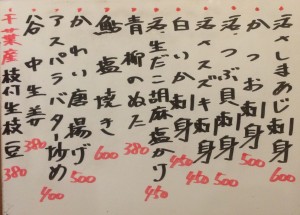 活〆しまあじ刺身 600
かつお刺身 500
活つぶ貝刺身 500
活〆スズキ刺身
白いか刺身 450
活生だこ胡麻塩かけ 450
青柳のぬた 380
鮎塩焼き 600
かれい唐揚げ 500
アスパラバター炒め 400
谷中生姜 380
千葉産枝付生枝豆 380